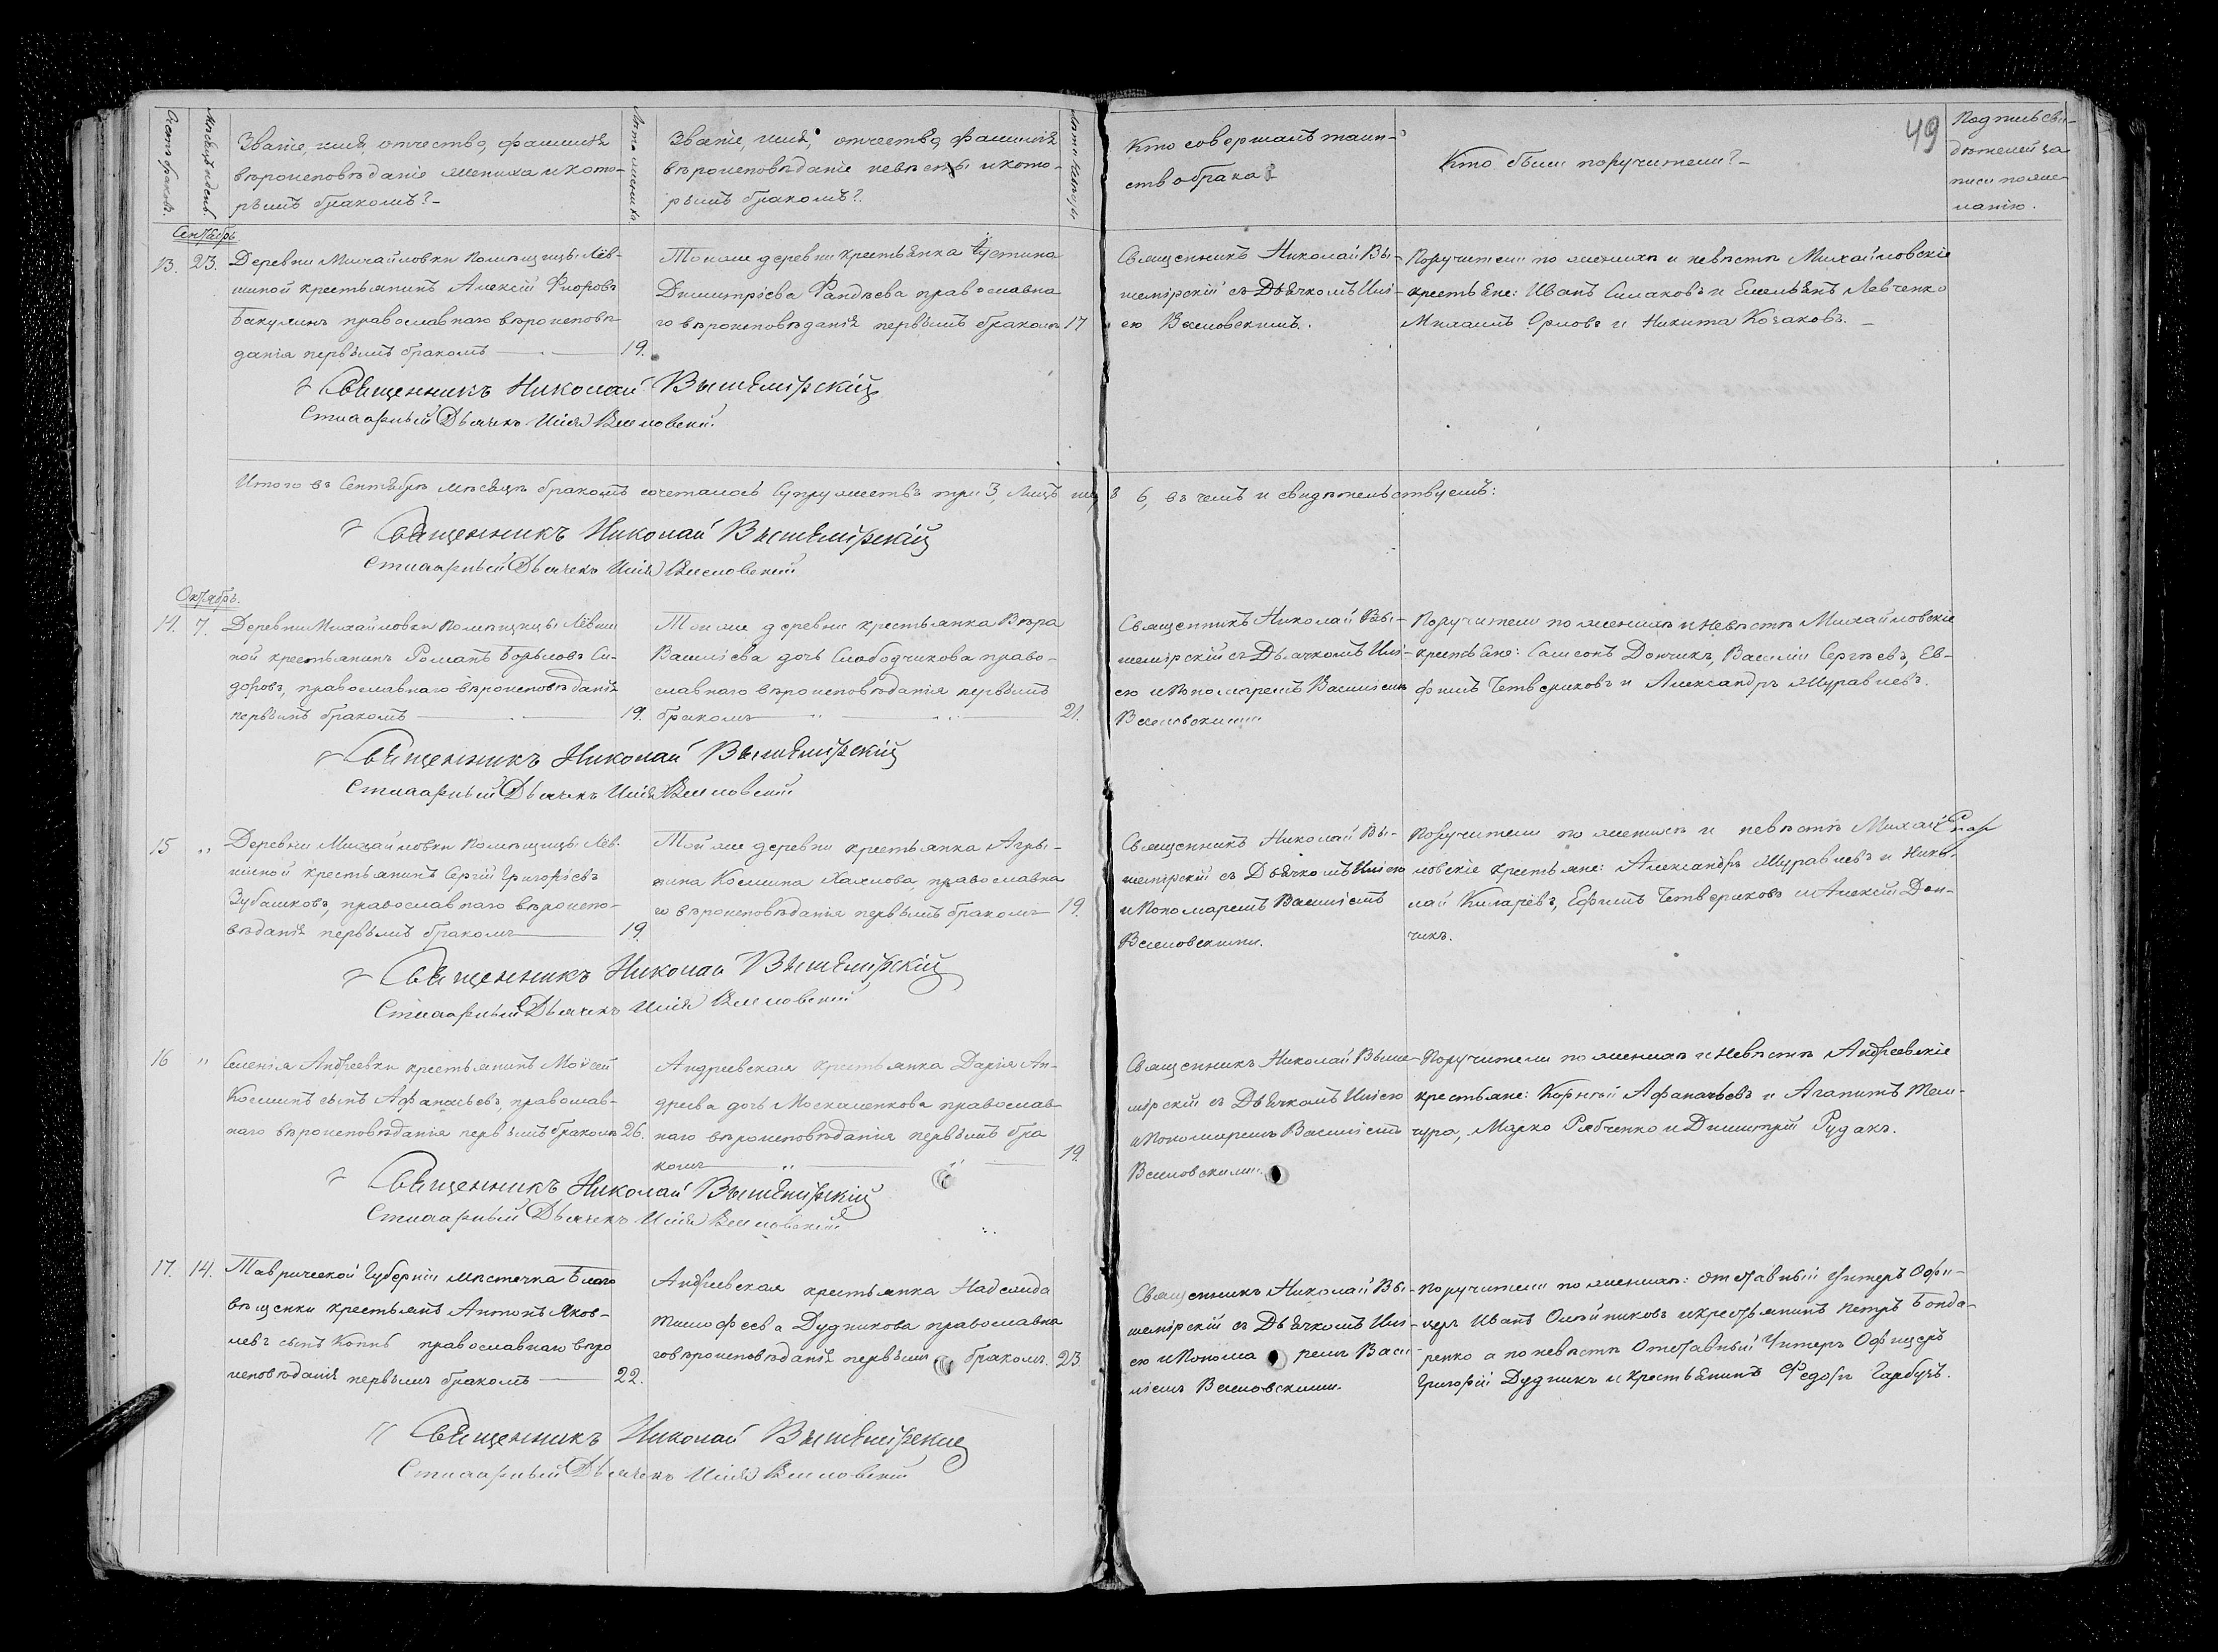 49
Счетъ браковъ.
Мѣсяцъ и день.
Званіе, имя, отчество, фамилія
вѣроисповѣданіе жениха и кото-
рымъ бракомъ?-
Лѣта жениха.
Званіе, имя, отчество, фамилія
вѣроисповѣданіе невѣсты и кото-
рымъ бракомъ?
Лѣта невѣсты.
Кто совершалъ таин-
ство брака?
Кто были поручители?-
Подпись сви-
дѣтелей за
писи по же-
ланію.
Сентябрь
13. 23.
Деревни Михайловки помѣщицы Лёв-
шиной крестьянинъ Алексій
Бакулинъ православнаго вѣроисповѣ
данія первымъ бракомъ 19.
Тойже деревни крестьянка Іустина
Димитріева православна
го вѣроисповѣданія первымъ бракомъ 17
Священникъ Николай Вы-
шемірскій съ Дьячкомъ Илі-
ею
Поручители по женихѣ и невѣстѣ Михайловскіе
крестьяне: Иванъ Симаковъ и Емельянъ Левченко
Михаилъ Орловъ и Никита Козаковъ.
Священникъ Николай Вышемірскій
Стихарный Дьячекъ Илія
Итого въ Сентябрѣ мѣсяцѣ бракомъ сочеталось Супружествъ три 3, Лицъ 6, въ чемъ и свидѣтельствуемъ:
Священникъ Николай Вышемірскій
Стихарный Дьячекъ Илія
Октябрь.
14. 7.
Деревни Михайловки помѣщицы Лёвши
ной крестьянинъ Романъ Борисовъ Си-
доровъ, православнаго вѣроисповѣданія
первымъ бракомъ 19.
Тойже деревни крестьянка Вѣра
Василіева дочь Слободчикова право-
славнаго вѣроисповѣданія первымъ
бракомъ 21.
Священникъ Николай Вы-
шемірскій съ Дьячкомъ Илі-
ею и Пономаремъ Василіемъ
Поручители по женихѣ и невѣстѣ Михайловскіе
крестьяне: Самсонъ Дончикъ, Василій Сергѣевъ, Ев-
фимъ Четвериковъ и Александръ Журавлевъ.
Священникъ Николай Вышемірскій
Стихарный Дьячекъ Илія
15 "
Деревни Михайловки помѣщицы Лёв-
шиной крестьянинъ Сергій Григоріевъ
Зубашковъ, православнаго вѣроиспо-
вѣданія первымъ бракомъ 19.
Тойже деревни крестьянка Агри-
пина Космина православна
го вѣроисповѣданія первымъ бракомъ 19.
Священникъ Николай Вы-
шемірскій съ Дьячкомъ Иліею
и Пономаремъ Василіемъ
Поручители по женихѣ и невѣстѣ Михай
ловскіе крестьяне: Александръ Журавлевъ и Нико-
лай Ефимъ Четвериковъ и Алексій Дон-
чикъ.
Священникъ Николай Вышемірскій
Стихарный Дьячекъ Илія
16 "
Селенія Андреевки крестьянинъ Моисей
Косминъ сынъ Афанасьевъ, православ-
наго вѣроисповѣданія первымъ бракомъ 26.
Андреевская крестьянка Дарія Ан-
дреева дочь Москаленкова православ-
наго вѣроисповѣданія первымъ бра
комъ 19.
Священникъ Николай Выше-
мірскій съ Дьячкомъ Иліею
и Пономаремъ Василіемъ
Поручители по женихѣ и невѣстѣ Андреевскіе
крестьяне: Корній Афанасьевъ и Агапитъ
Марко Рябченко и Димитрій Рудакъ.
Священникъ Николай Вышемірскій
Стихарный Дьячекъ Илія
17. 14.
Таврической Губерніи мѣстечка Благо
вѣщенки крестьянъ Антонъ Яков-
левъ сынъ православнаго вѣро
исповѣданія первымъ бракомъ 22.
Андреевская крестьянка Надежда
Тимофеева Дудникова православна
го вѣроисповѣданія первымъ бракомъ. 23
Священникъ Николай Вы-
шемірскій съ Дьячкомъ Илі-
ею и Пономаремъ Васи-
ліемъ
Поручители по женихѣ: отставный Унтеръ Офи-
церъ Иванъ Олейниковъ и крестьянинъ Петръ Бонда-
ренко а по невѣстѣ Отставный Унтеръ Офицеръ
Григорій Дудникъ и крестьянинъ Федоръ Гарбузъ.
Священникъ Николай Вышемірскій
Стихарный Дьячекъ Илія